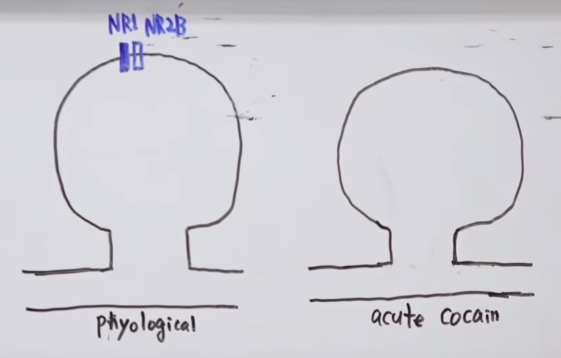 NR1 NR2B
phyological
acute cocain